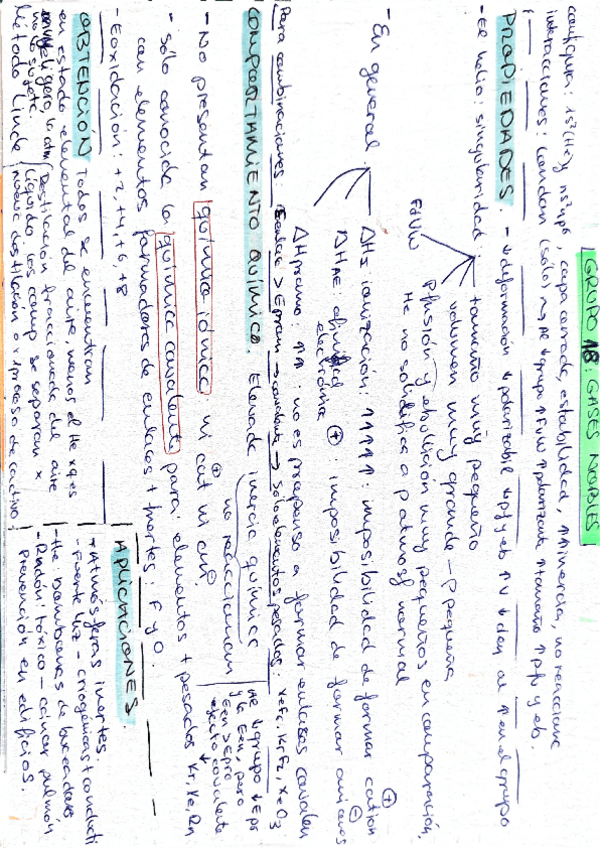 GRUPO 18: GASES NOBLES
configura: 1s²(He) y ns²np⁶, capa cerrada, estabilidad, ↑↑inercia, no reacciona
interacciones: London (sólo)
PROPIEDADES. - ↓deformación ↓polarizable ↓pf y eb ↑V ↓den al ↑ en el grupo
- El helio: singularidad: tamaño muy pequeño
volumen muy grande - ρ pequeña
FdVW Pfusión y ebullición muy pequeños en comparación,
He no solidifica a patmosf normal
- En general. ΔHI ionización: ↑↑↑↑↑: imposibilidad de formar catión ⊕
ΔHAE afinidad electrónica ⊕: imposibilidad de formar aniones ⊖
ΔHpromo: ↑↑: no es propenso a formar enlaces covalen
Para combinaciones: Eenlac > Eprom → covalente → sólo elementos pesados: XeF2, KrF2, XeO3
COMPORTAMIENTO QUÍMICO. Elevada inercia química
no reaccionan
- No presentan química iónica: ni cat⊕ ni an⊖.
- Sólo conocida la química covalente para: elementos + pesados Kr, Xe, Rn
con elementos formadores de enlaces + fuertes: F y O.
- E oxidación: +2, +4, +6, +8
OBTENCIÓN Todos se encuentran
en estado elemental del aire menos el He xq es
muy ligero, la atm no lo sujeta.
Método Linde
Destilación fraccionada del aire
líquido, los comp se separan x
APLICACIONES.
- Atmósferas inertes.
- Fuente luz - criogénicas + conducti
- He: bombonas de buceadores
- Radón: tóxico - cáncer pulmón
Prevención en edificios.